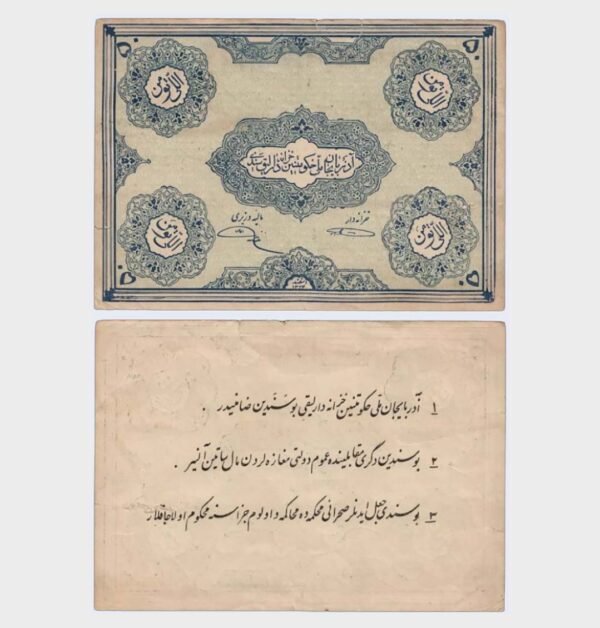 ۵۰ ۵۰
اللی تومن
آذربایجان ملی حکومتینین خزانه دارلیق سندی
خزانه دار مالیه وزیری
اللی تومن
۵۰ ۵۰
۱ آذربایجان ملی حکومتنین خزانه داریلقی بوسندین ضامنیدر .
۲ بوسندین دگری مقابلینده عموم دولتی مغازه لردن مال ساتین آلنیر .
۳ بوسندی جعل ایدنلر صحرائی محکمه ده محاکمه و اولوم جزاسنه محکوم اولاجاقلار